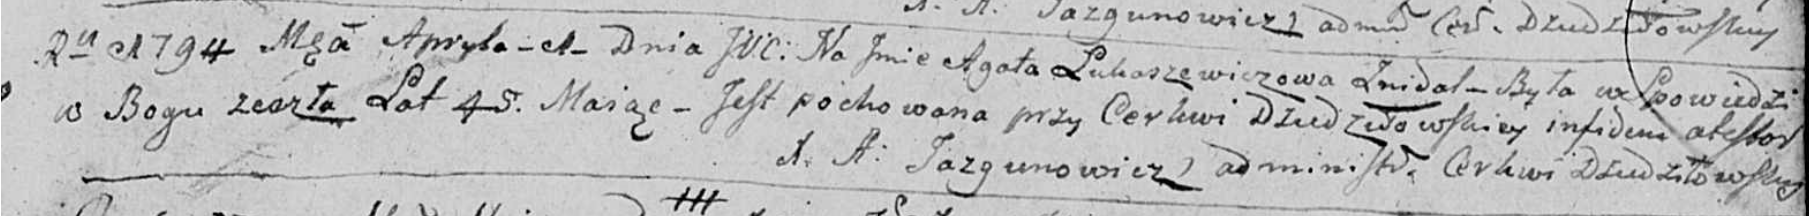 X. A. Jazgunowicz admīn Cer. Dziedziłowskiey
Ru 1794 Mcā Apryla - Dnia Na Jmie Agata Łukaszewiczowa - Była w Spowiedzi
w Bogu zeszła Lat 45. Maiąc - Jest pochowana przy Cerkwi Dziedziłowskiey in fidem atestor
X. A. Jazgunowicz administr. Cerkwi Dziedziłowskiey